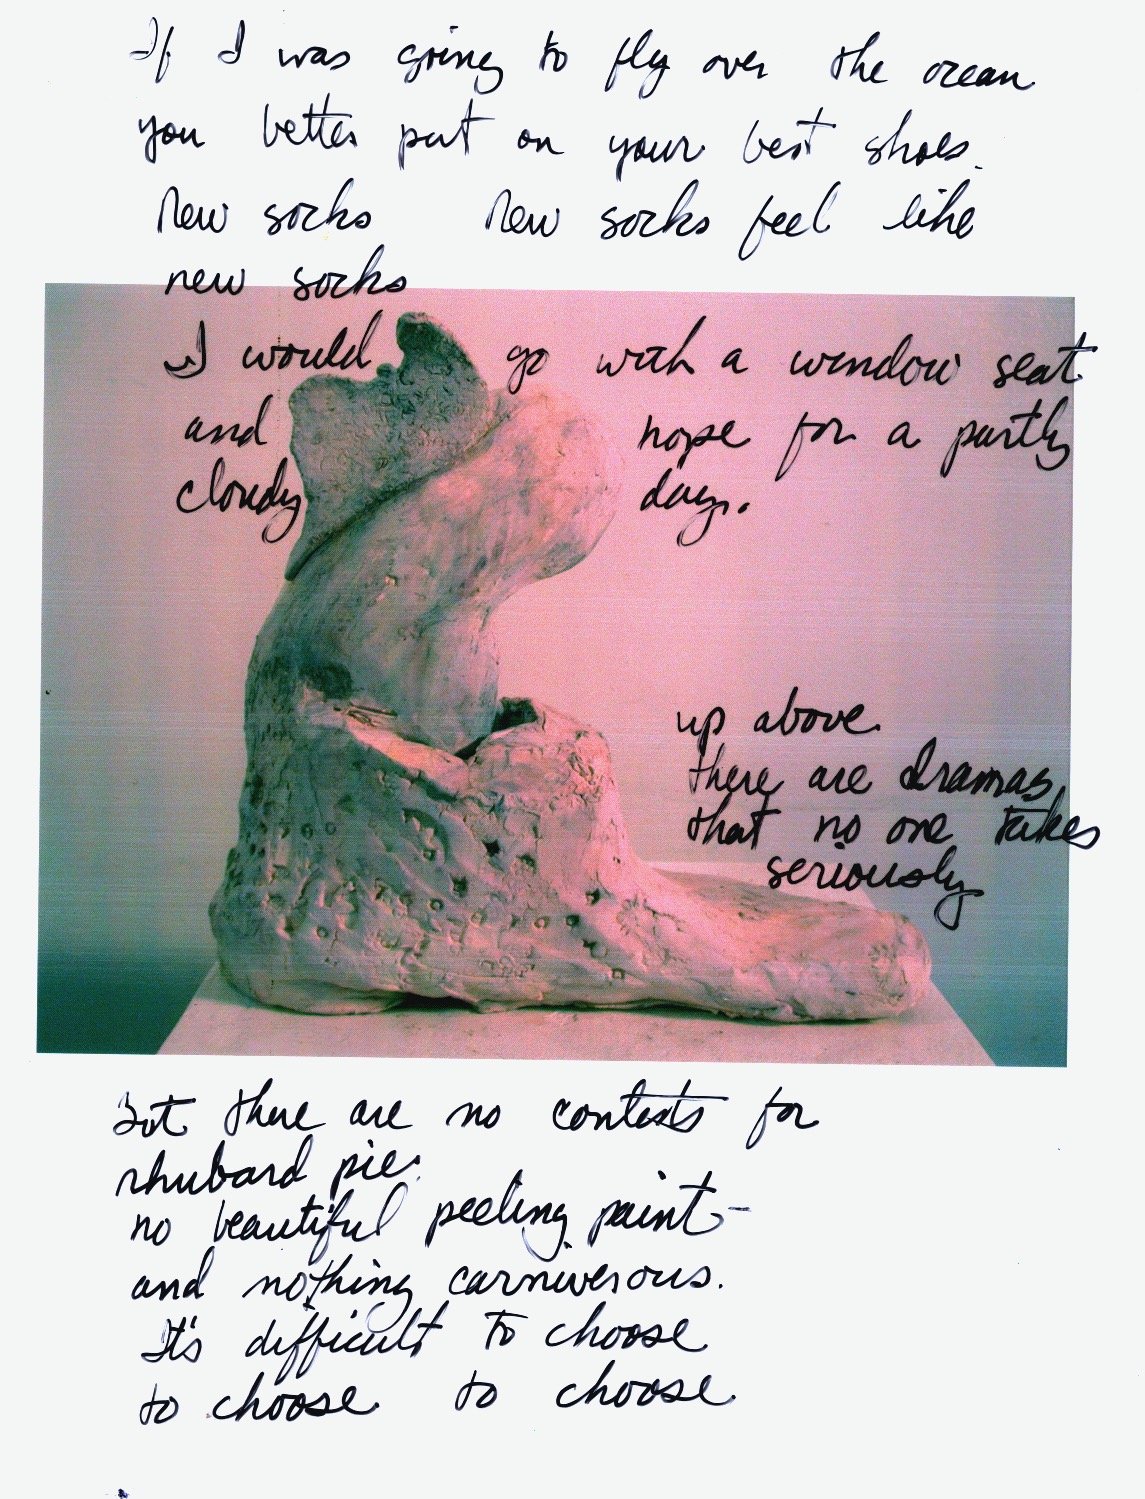 If I was going to fly over the ocean
you better put on your best shoes.
New socks New socks feel like
new socks
I would go with a window seat
and hope for a partly
cloudy day.
up above
there are dramas
that no one takes
seriously
but there are no contests for
rhubard pie.
no beautiful peeling paint-
and nothing carniverous.
It's difficult to choose
to choose to choose